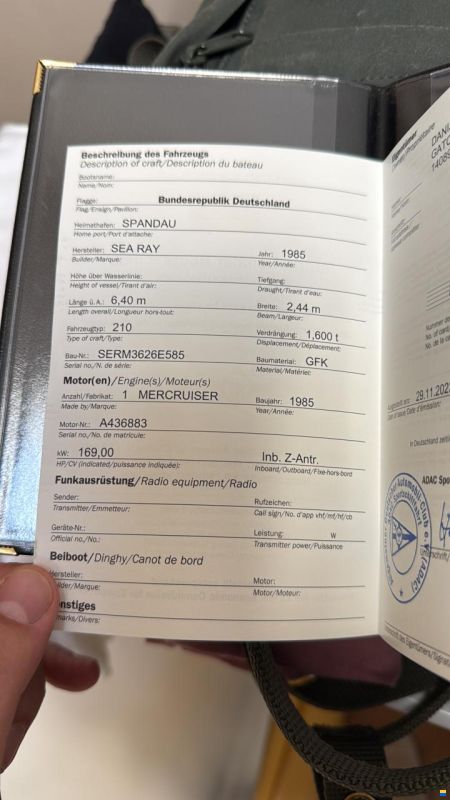 Beschreibung des Fahrzeugs
Description of craft/Description du bateau
Bootsname:
Name/Nom:
Flagge: Bundesrepublik Deutschland
Flag/Ensign/Pavillon:
Heimathafen: SPANDAU
Home port/Port d'attache:
Hersteller: SEA RAY Jahr: 1985
Builder/Marque: Year/Année:
Höhe über Wasserlinie: Tiefgang:
Height of vessel/Tirant d'air: Draught/Tirant d'eau:
Länge ü.A.: 6,40 m Breite: 2,44 m
Length overall/Longueur hors-tout: Beam/Largeur:
Fahrzeugtyp: 210 Verdrängung: 1,600 t
Type of craft/Type: Displacement/Déplacement:
Bau-Nr.: SERM3626E585 Baumaterial: GFK
Serial no./N. de série: Material/Matériel:
Motor(en)/Engine(s)/Moteur(s)
Anzahl/Fabrikat: 1 MERCRUISER Baujahr: 1985
Made by/Marque: Year/Année:
Motor-Nr.: A436883
Serial no./No. de matricule:
kW: 169,00 Inb. Z-Antr.
HP/CV (indicated/puissance indiquée): Inboard/Outboard/Fixe-hors-bord
Funkausrüstung/Radio equipment/Radio
Sender: Rufzeichen:
Transmitter/Emmetteur: Call sign/No. d'app vhf/mf/hf/cb
Geräte-Nr.: Leistung: W
Official no./No.: Transmitter power/Puissance
Beiboot/Dinghy/Canot de bord
ersteller: Motor:
ilder/Marque: Motor/Moteur:
onstiges
marks/Divers:
Eigentümer
DANI
GATO
1408
Nummer de
No. of cert
No. de la c
Ausgestellt am: 29.11.202
Date of issue/Date d'émission:
In Deutschland zeitl
ADAC Spo
Automobil-Club e.V. (ADAC)
schrift des Eigentümers/Signat